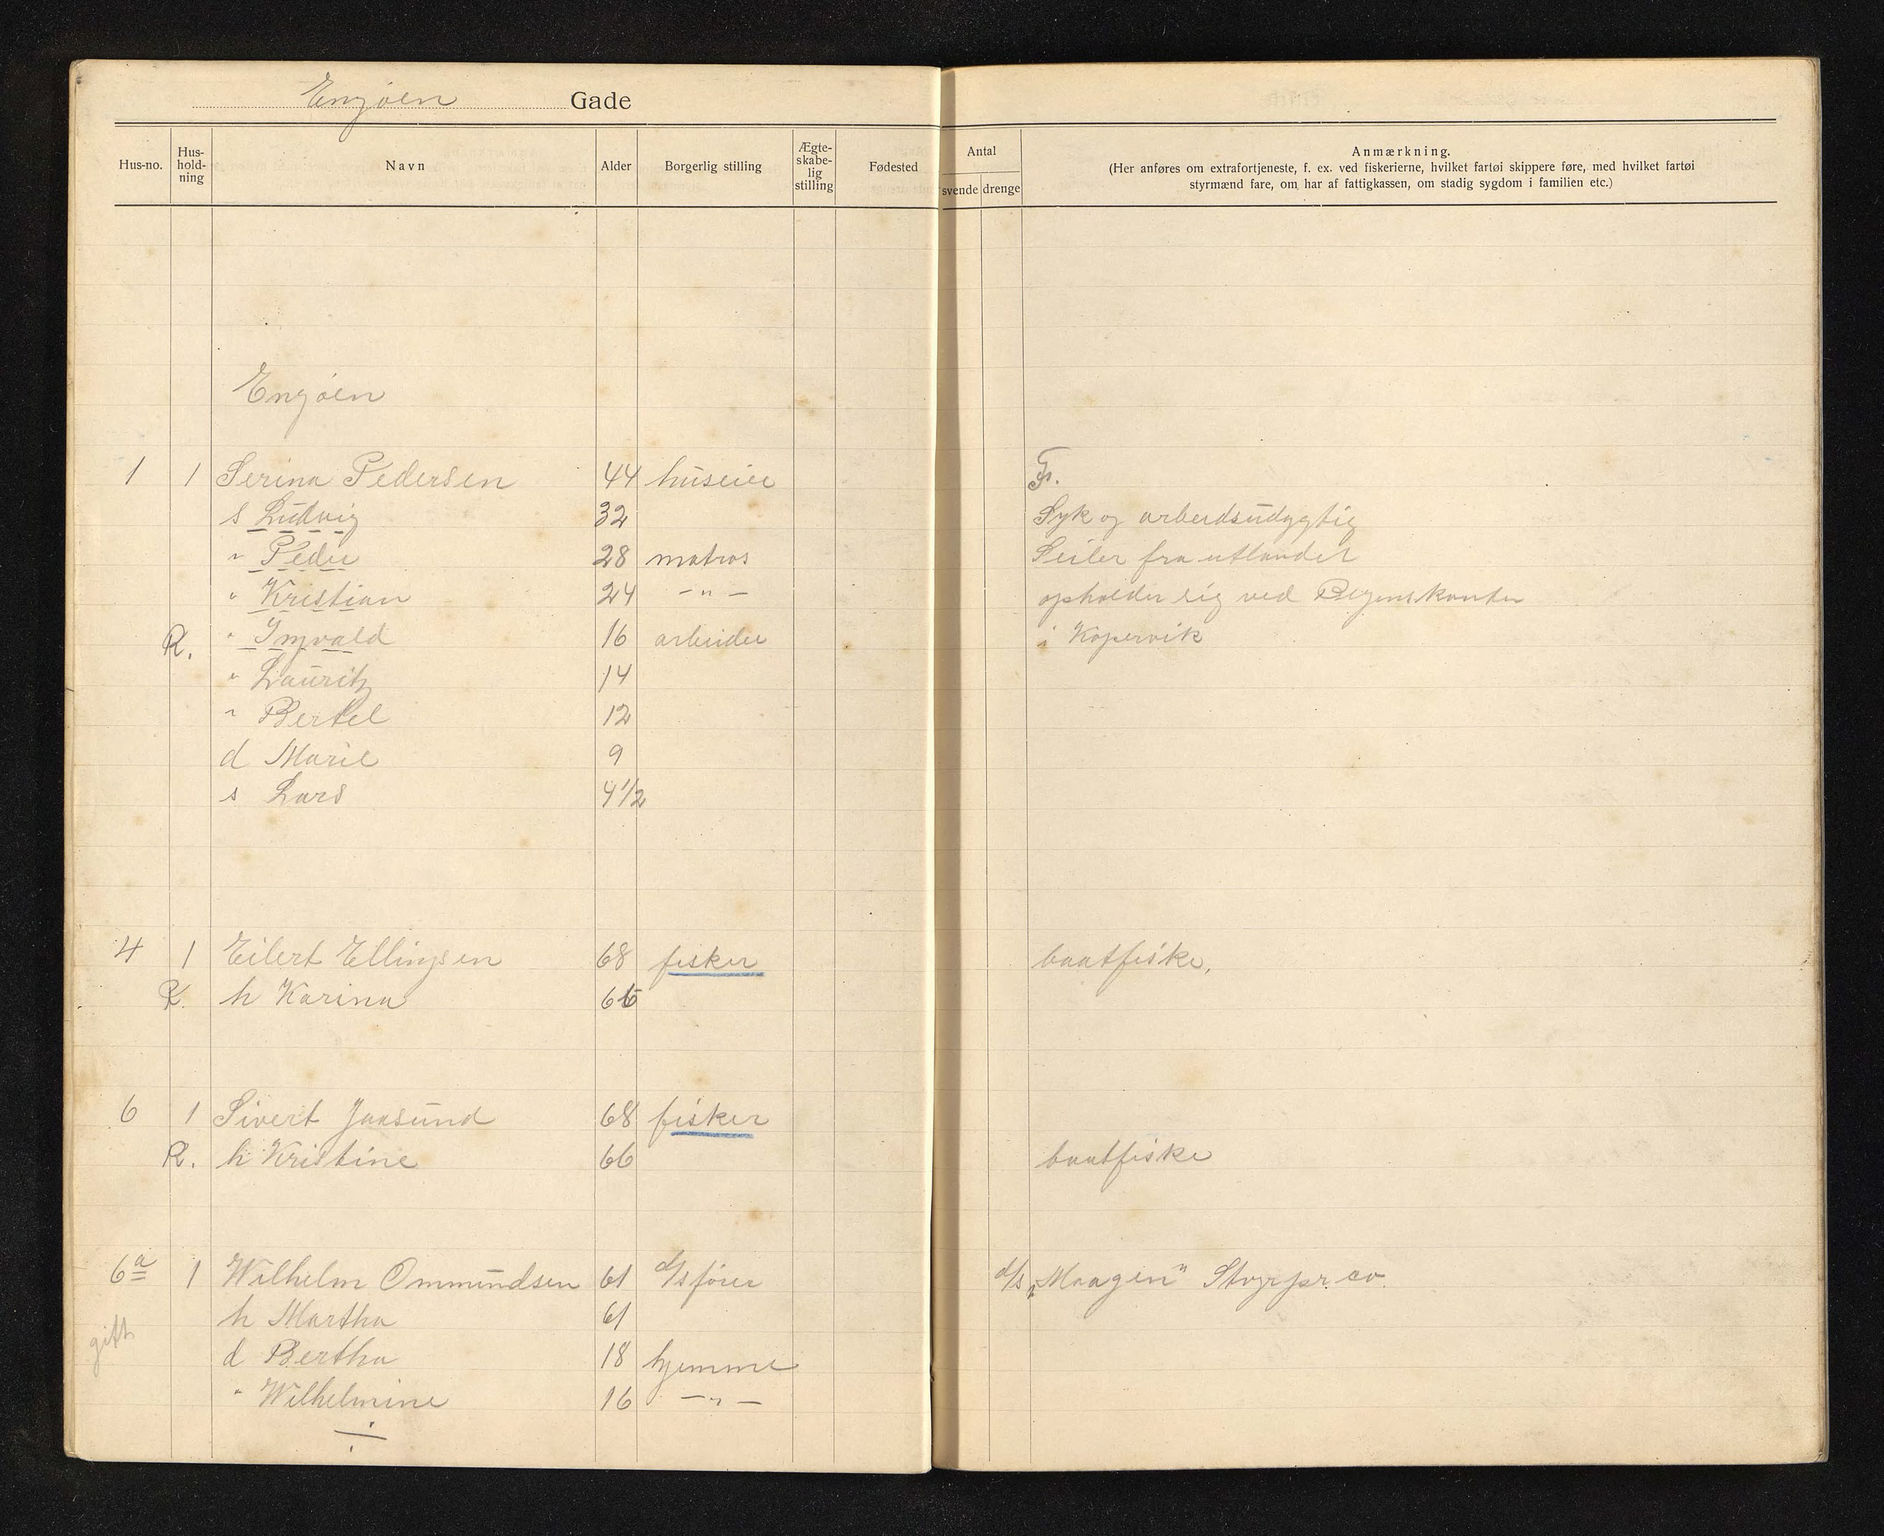 Engøen Gade
Hus-no. Hus-hold-ning Navn Alder Borgerlig stilling Ægte-skabe-lig stilling Fødested Antal svende drenge Anmærkning.
(Her anføres om extrafortjeneste, f. ex. ved fiskerierne, hvilket fartøi skippere føre, med hvilket fartøi
styrmænd fare, om har af fattigkassen, om stadig sygdom i familien etc.)
Engøen
1 1 Serina Pedersen 44 huseier Fr.
s Ludvig 32 Syk og arbeidsudygtig
" Peder 28 matros Seiler fra utlandet
" Kristian 24 — " — opholder sig ved
R. " Ingvald 16 arbeider i Kopervik
" Lauritz 14
" Bertel 12
d Marie 9
s Lars 4 1/2
4 1 Eilert Ellingsen 68 fisker baatfiske,
R. h Karina 66
6 1 Sivert Jaasund 68 fisker
R. h Kristine 66 baatfiske
6a 1 Wilhelm Ommundsen 61 d/s fører d/s "Maagen"
h Martha 61
gift d Bertha 18 hjemme
" Wilhelmine 16 — " —